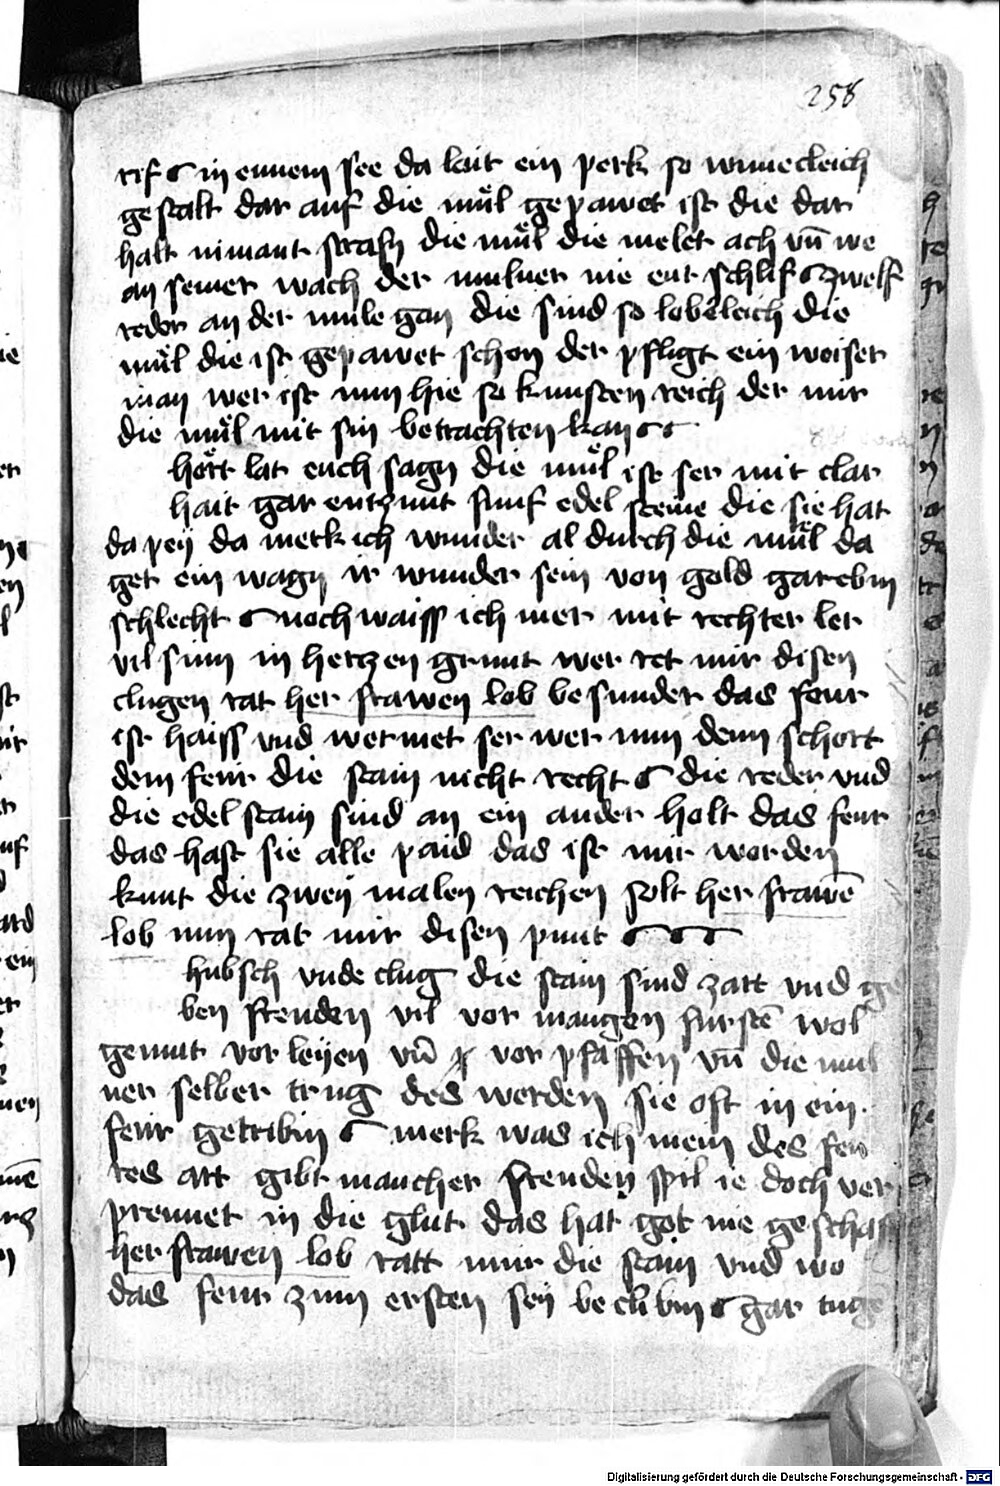 258
in einem see da lait ein perk so wunecleich
gestalt dar auf die mül gepawet ist die dar
halt nimant strafn die mül die melet ach vn̄ we
an seiner wach der mulner nie ent schlif zwelf
reder an der mule gan die sind so lobeleich die
mül die ist gepawet schon der pfligt ein weiser
man wer ist nun hie so kunsten reich der mir
die mül mit sin betrachten kan
hört lat euch sagn die mül ist ser mit clar
hait gar entzunt funf edel steine die sie hat
da peÿ da merk ich wunder al durch die mül da
get ein wagn ir wunder sein von gold gar ebin
schlecht noch waiss ich mer mit rechter ler
vil sinn in hertzen grunt wer ret mir disen
clugen rat her frawen lob besunder das feur
ist haiss vnd wermet ser wer nun denn schort
dem feur die stain nicht recht die reder vnd
die edel stain sind an ein ander holt das feur
das hast sie alle paid das ist mir worden
kunt die zweÿ malen reichen solt her frawē
lob nun rat mir disen punt
hubsch vnde clug die stain sind zart vnd ge
ben freuden vil vor mangen furstē wol
gemut vor leÿen vn̄ vor pfaffen vn̄ die mul
ner selber trug des werden sie oft in ein
feur getribin merk was ich mein des feu
res art gibt mancher freuden spil ie doch ver
prennet in die glut das hat got nie geschaf
her frawen lob ratt mir die stain vnd wo
das feur zum ersten seÿ beclibin gar
Digitalisierung gefördert durch die Deutsche Forschungsgemeinschaft - DFG